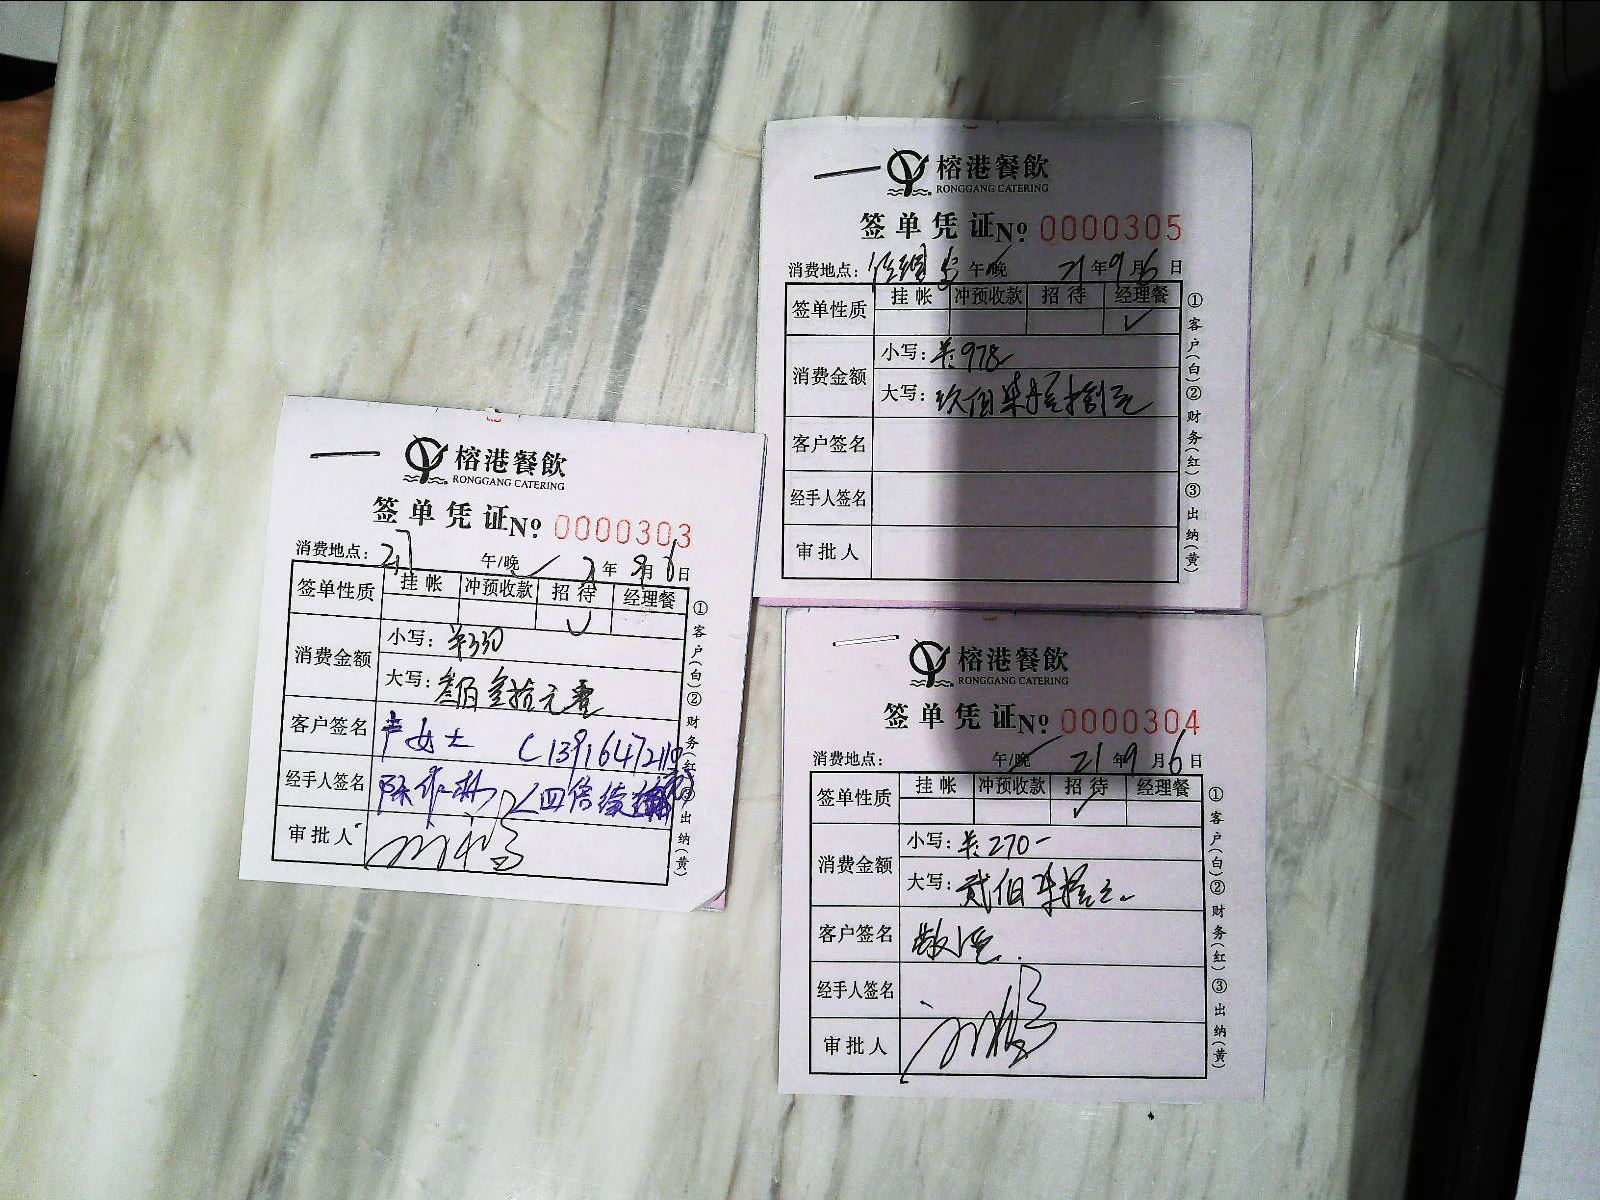 榕港餐飲
RONGGANG CATERING
签单凭证 Nº 0000305
消费地点： 午/晚 21年9月6日
签单性质 挂帐 冲预收款 招待 经理餐
✓
消费金额
小写：¥:978
大写：玖佰柒拾捌元
客户签名
经手人签名
审批人
①客户(白)②财务(红)③出纳(黄)
榕港餐飲
RONGGANG CATERING
签单凭证 Nº 0000303
消费地点：27 午/晚 ✓ 年9月6日
签单性质 挂帐 冲预收款 招待 经理餐
✓
消费金额
小写：¥330
大写：叁佰叁拾元
客户签名 女士
经手人签名
审批人
①客户(白)②财务(红)③出纳(黄)
榕港餐飲
RONGGANG CATERING
签单凭证 Nº 0000304
消费地点： 午/晚 21年9月6日
签单性质 挂帐 冲预收款 招待 经理餐
✓
消费金额
小写：¥:270-
大写：贰佰柒拾元
客户签名
经手人签名
审批人
①客户(白)②财务(红)③出纳(黄)